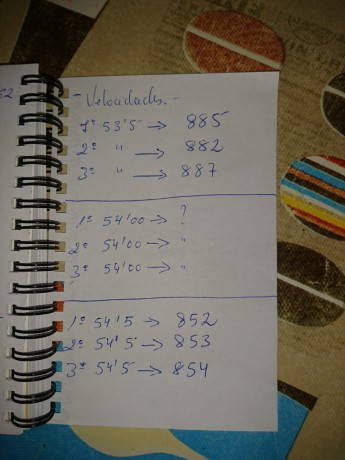 - Velocidades.-
1º 53'5 → 885
2º " → 882
3º " → 887
1º 54'00 → ?
2º 54'00 → "
3º 54'00 → "
1º 54'5 → 852
2º 54'5 → 853
3º 54'5 → 854